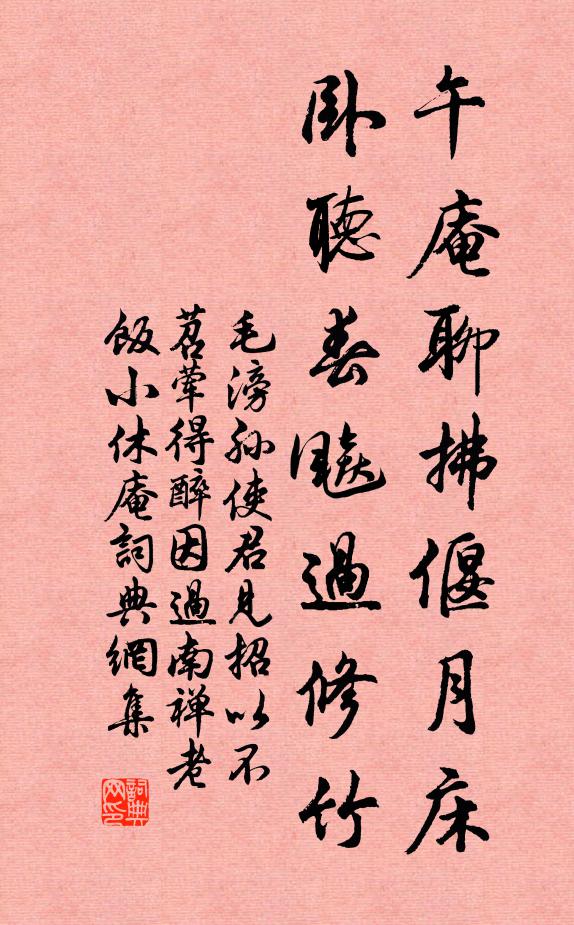 午庵聊拂偃月床
卧聽春飚過修竹
毛滂孙使君見招以不
茹葷得醉因過南禅老
飯小休庵詞典網集
詞典网印